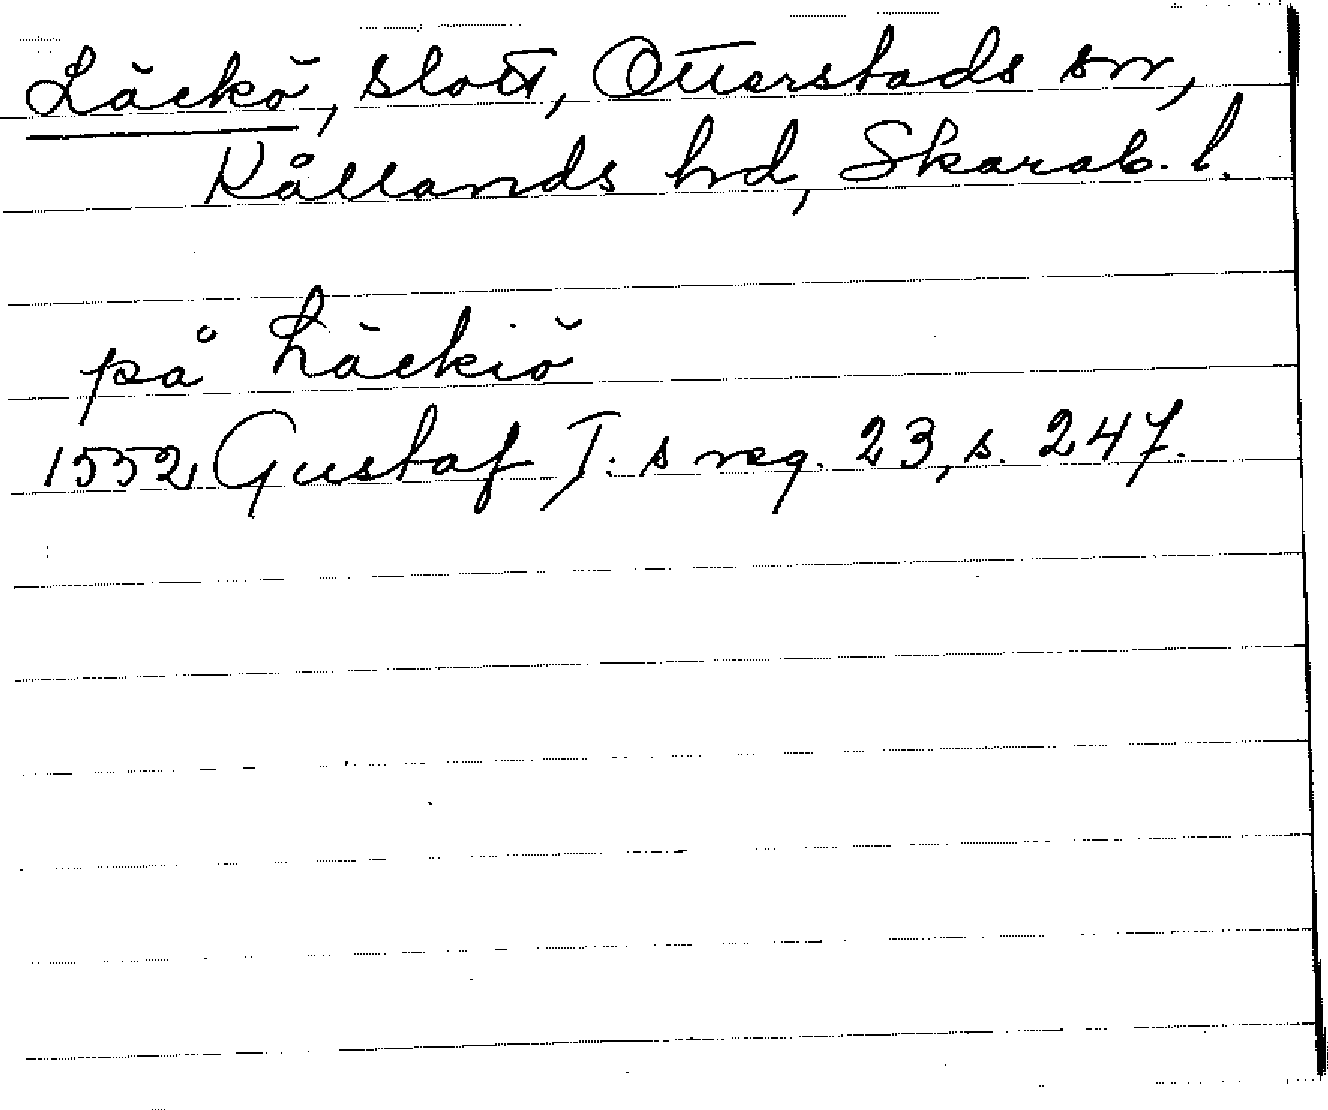 Läckö, slott, Otterstads sn,
Kållands hd, Skarab. l.
på Läckiö
1552, Gustaf I: s reg. 23, s. 247.